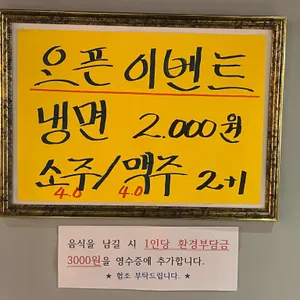 오픈이벤트
냉면 2.000원
소주/맥주 2+1
4.0 4.0
음식을 남길 시 1인당 환경부담금
3000원을 영수증에 추가합니다.
★ 협조 부탁드립니다. ★